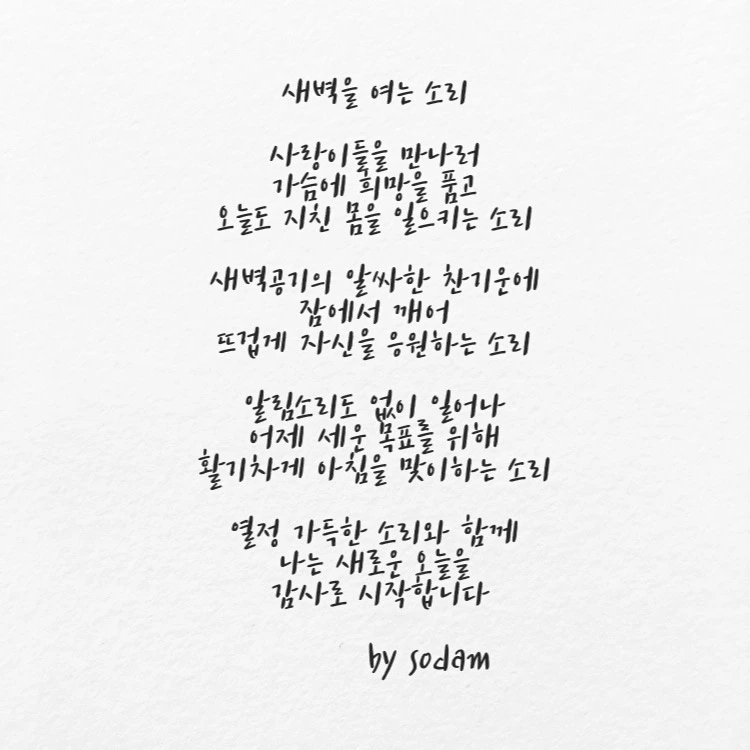 새벽을 여는 소리
사랑이들을 만나러
가슴에 희망을 품고
오늘도 지친 몸을 일으키는 소리
새벽공기의 알싸한 찬기운에
잠에서 깨어
뜨겁게 자신을 응원하는 소리
알림소리도 없이 일어나
어제 세운 목표를 위해
활기차게 아침을 맞이하는 소리
열정 가득한 소리와 함께
나는 새로운 오늘을
감사로 시작합니다
by sodam